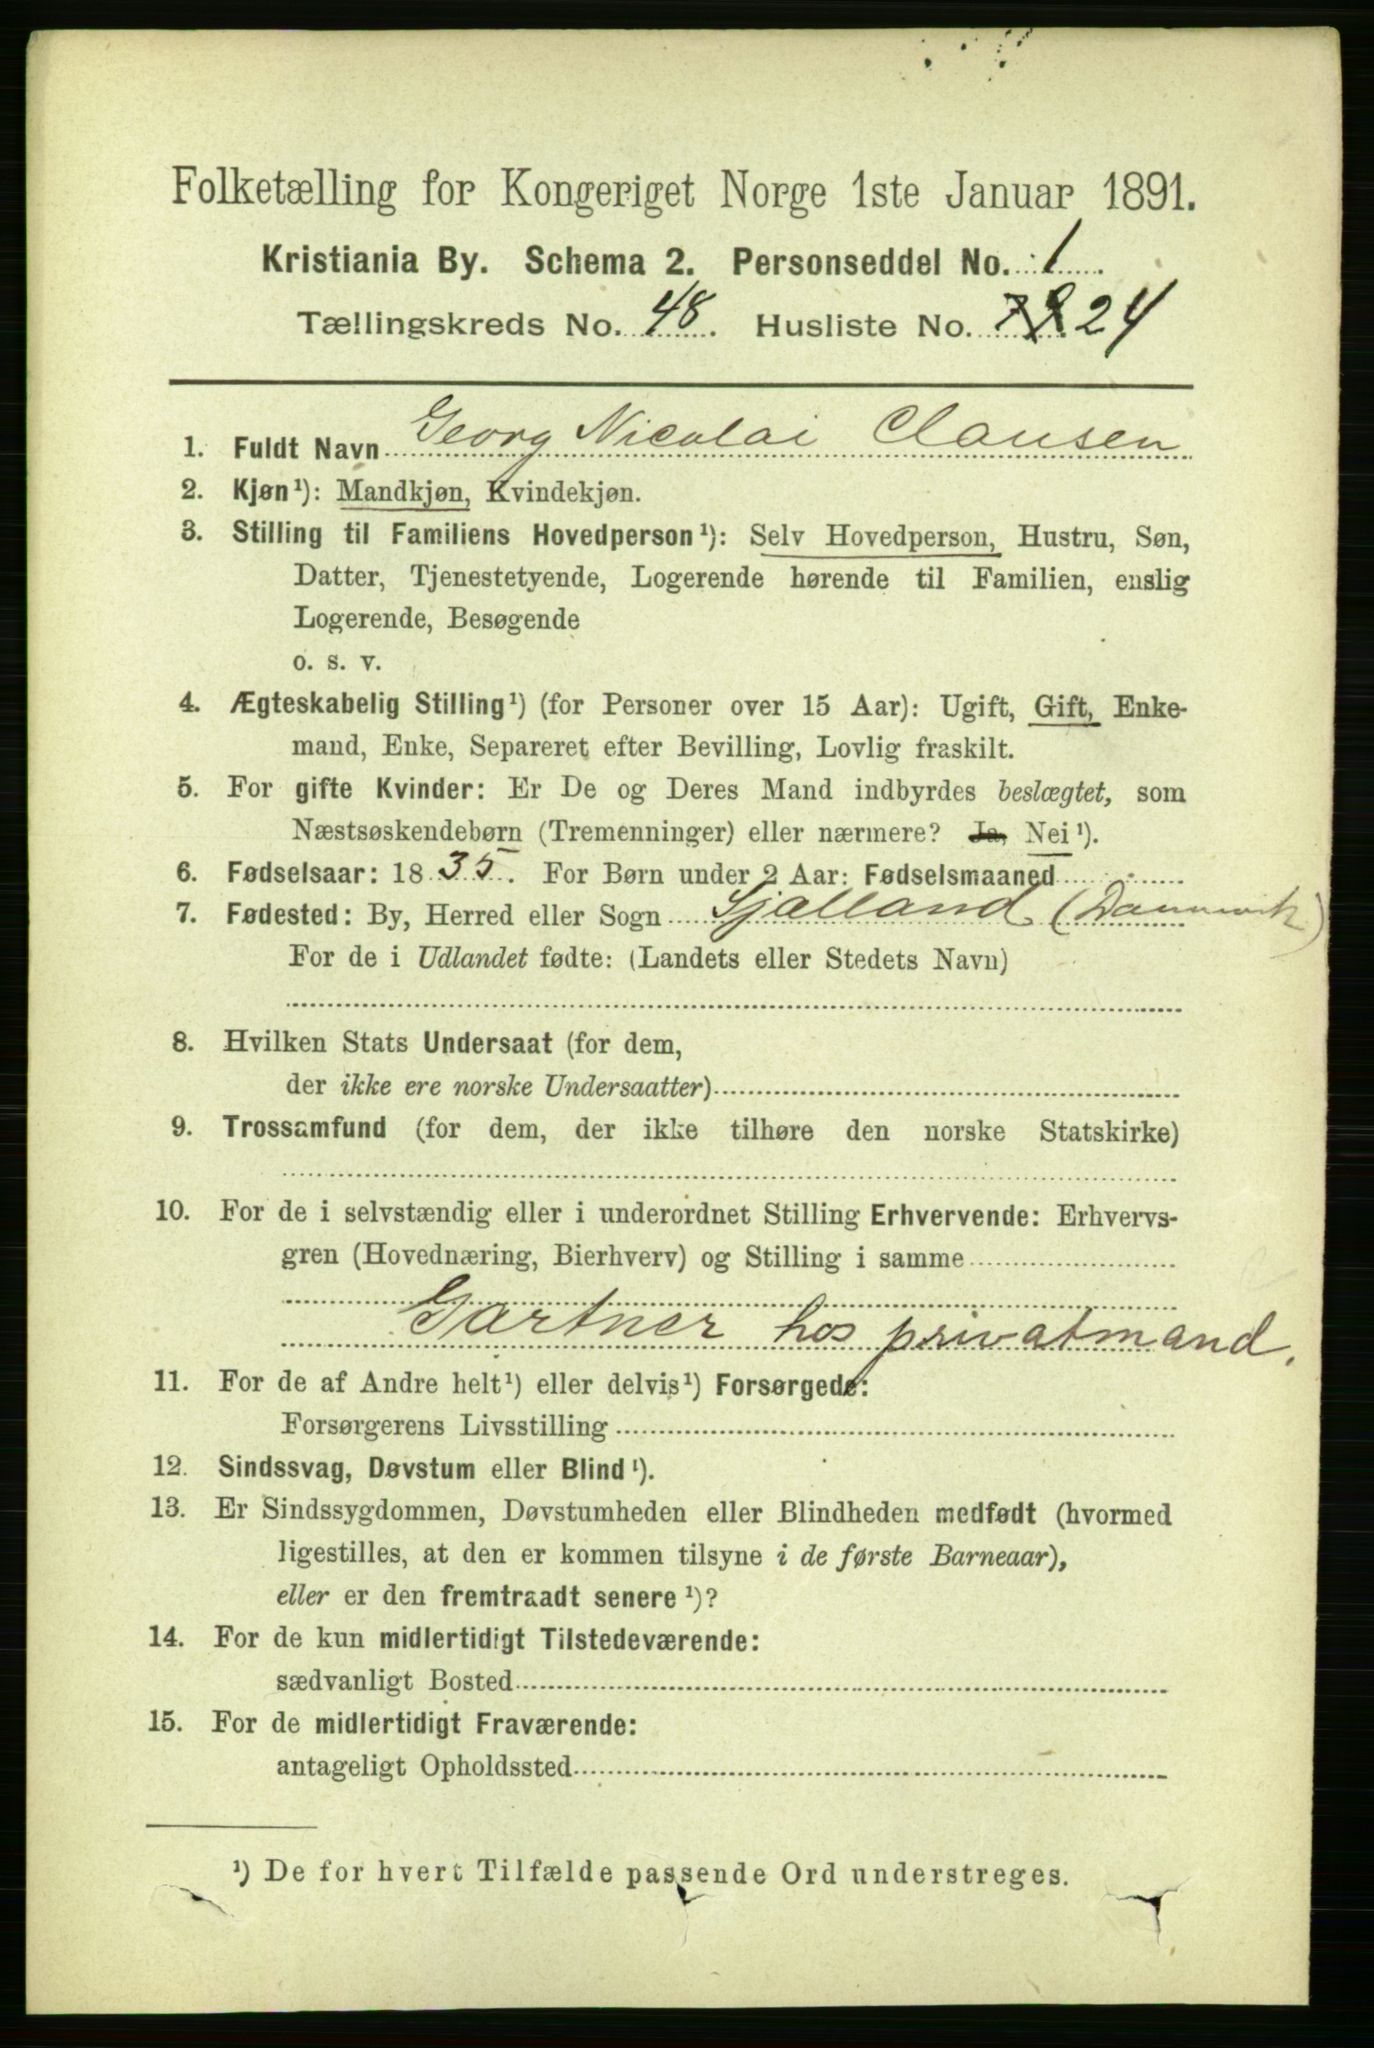 Folketælling for Kongeriget Norge 1ste Januar 1891.
Kristiania By. Schema 2. Personseddel No. 1
Tællingskreds No. 48. Husliste No. 24
1. Fuldt Navn Georg Nicolai Clausen
2. Kjøn¹): Mandkjøn, Kvindekjøn.
3. Stilling til Familiens Hovedperson¹): Selv Hovedperson, Hustru, Søn,
Datter, Tjenestetyende, Logerende hørende til Familien, enslig
Logerende, Besøgende
o. s. v.
4. Ægteskabelig Stilling¹) (for Personer over 15 Aar): Ugift, Gift, Enke-
mand, Enke, Separeret efter Bevilling, Lovlig fraskilt.
5. For gifte Kvinder: Er De og Deres Mand indbyrdes beslægtet, som
Næstsøskendebørn (Tremenninger) eller nærmere? Ja, Nei¹).
6. Fødselsaar: 1835. For Børn under 2 Aar: Fødselsmaaned
7. Fødested: By, Herred eller Sogn Sjælland (Danmark)
For de i Udlandet fødte: (Landets eller Stedets Navn)
8. Hvilken Stats Undersaat (for dem,
der ikke ere norske Undersaatter)
9. Trossamfund (for dem, der ikke tilhøre den norske Statskirke)
10. For de i selvstændig eller i underordnet Stilling Erhvervende: Erhvervs-
gren (Hovednæring, Bierhverv) og Stilling i samme
Gartner hos privatmand.
11. For de af Andre helt¹) eller delvis¹) Forsørgede:
Forsørgerens Livsstilling
12. Sindssvag, Døvstum eller Blind¹).
13. Er Sindssygdommen, Døvstumheden eller Blindheden medfødt (hvormed
ligestilles, at den er kommen tilsyne i de første Barneaar),
eller er den fremtraadt senere¹)?
14. For de kun midlertidigt Tilstedeværende:
sædvanligt Bosted
15. For de midlertidigt Fraværende:
antageligt Opholdssted
¹) De for hvert Tilfælde passende Ord understreges.